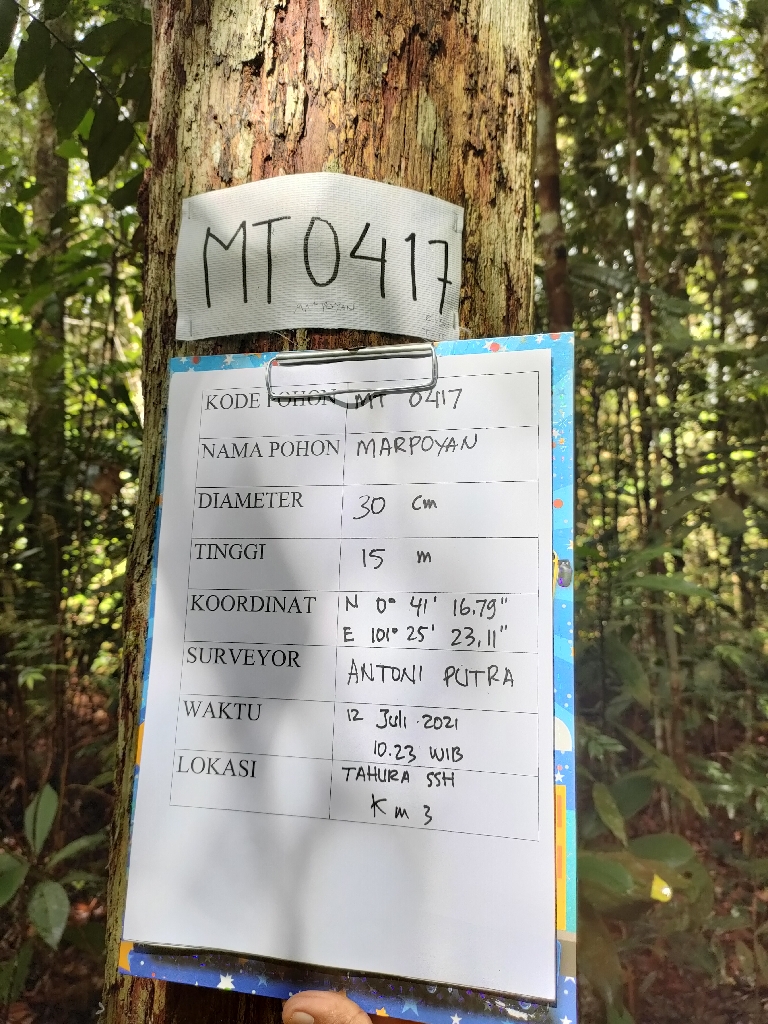 MT 0417
MARPOYAN
KODE POHON MT 0417
NAMA POHON MARPOYAN
DIAMETER 30 cm
TINGGI 15 m
KOORDINAT N 0° 41' 16.79"
E 101° 25' 23,11"
SURVEYOR ANTONI PUTRA
WAKTU 12 Juli 2021
10.23 WIB
LOKASI TAHURA SSH
Km 3